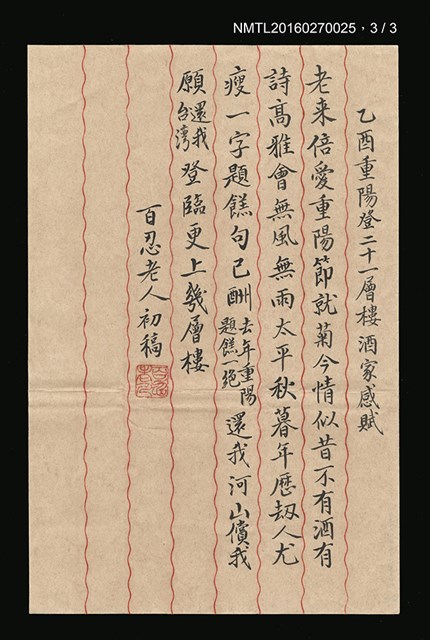 NMTL20160270025，3 / 3
乙酉重陽登二十一層樓酒家感賦
老来倍愛重陽節就菊今情似昔不有酒有
詩高雅會無風無雨太平秋暮年歷劫人尤
瘦一字題餻句已酬去年重陽題餻一絕還我河山償我
願還我台湾登臨更上幾層樓
百忍老人初稿